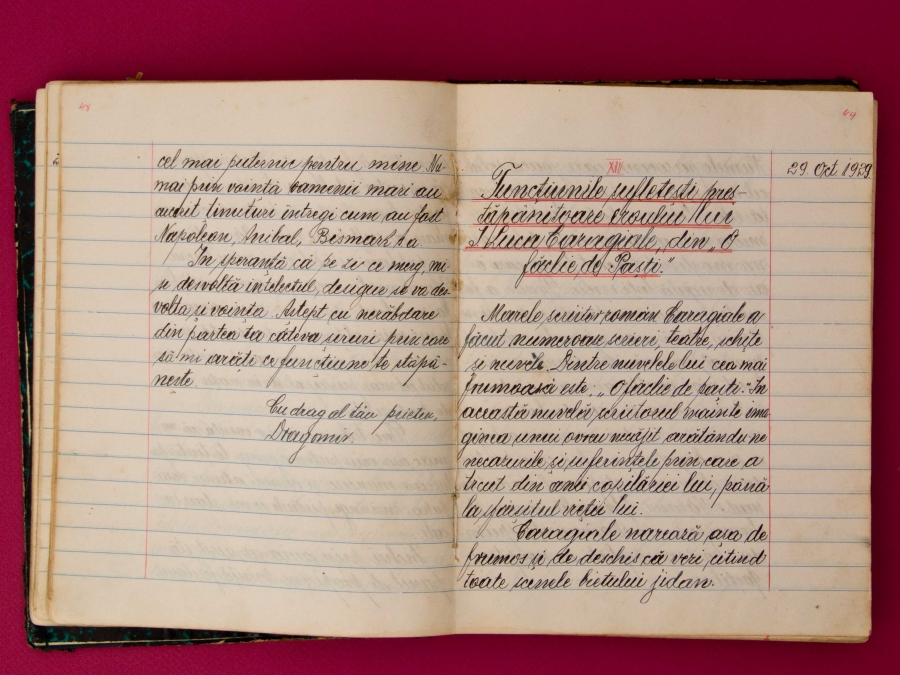 48
cel mai puternic pentru mine. Nu-
mai prin voință oamenii mari au
cucerit tinuturi întregi cum au fost
Napoleon, Anibal, Bismark ș.a.
In speranță că pe zi ce merg, mi-
se devoltă intelectul, desigur se va des-
volta și voința. Astept cu nerăbdare
din partea ta câteva siruri prin care
să mi arăte ce funcțiune te stăpâ-
nește.
Cu drag al tău prieten,
Dragomir.
49
XII
29. Oct 1929
Funcțiunile sufletești pres-
tăpânitoare eroului lui
I Luca Caragiale, din „O
făclie de Paști."
Marele scriitor român Caragiale a
făcut numeroase scrieri, teatre, schițe
și nuvele. Dintre nuvelele lui cea mai
frumoasă este: „O făclie de paști." In
această nuvelă scriitorul
ginea unui ovreu necăjit arătându-ne
necazurile și suferințele prin care a
trecut din anii copilăriei lui, până
la sfârșitul vieții lui.
Caragiale narează așa de
frumos și de deschis că vezi citind
toate scenele bietului jidan.